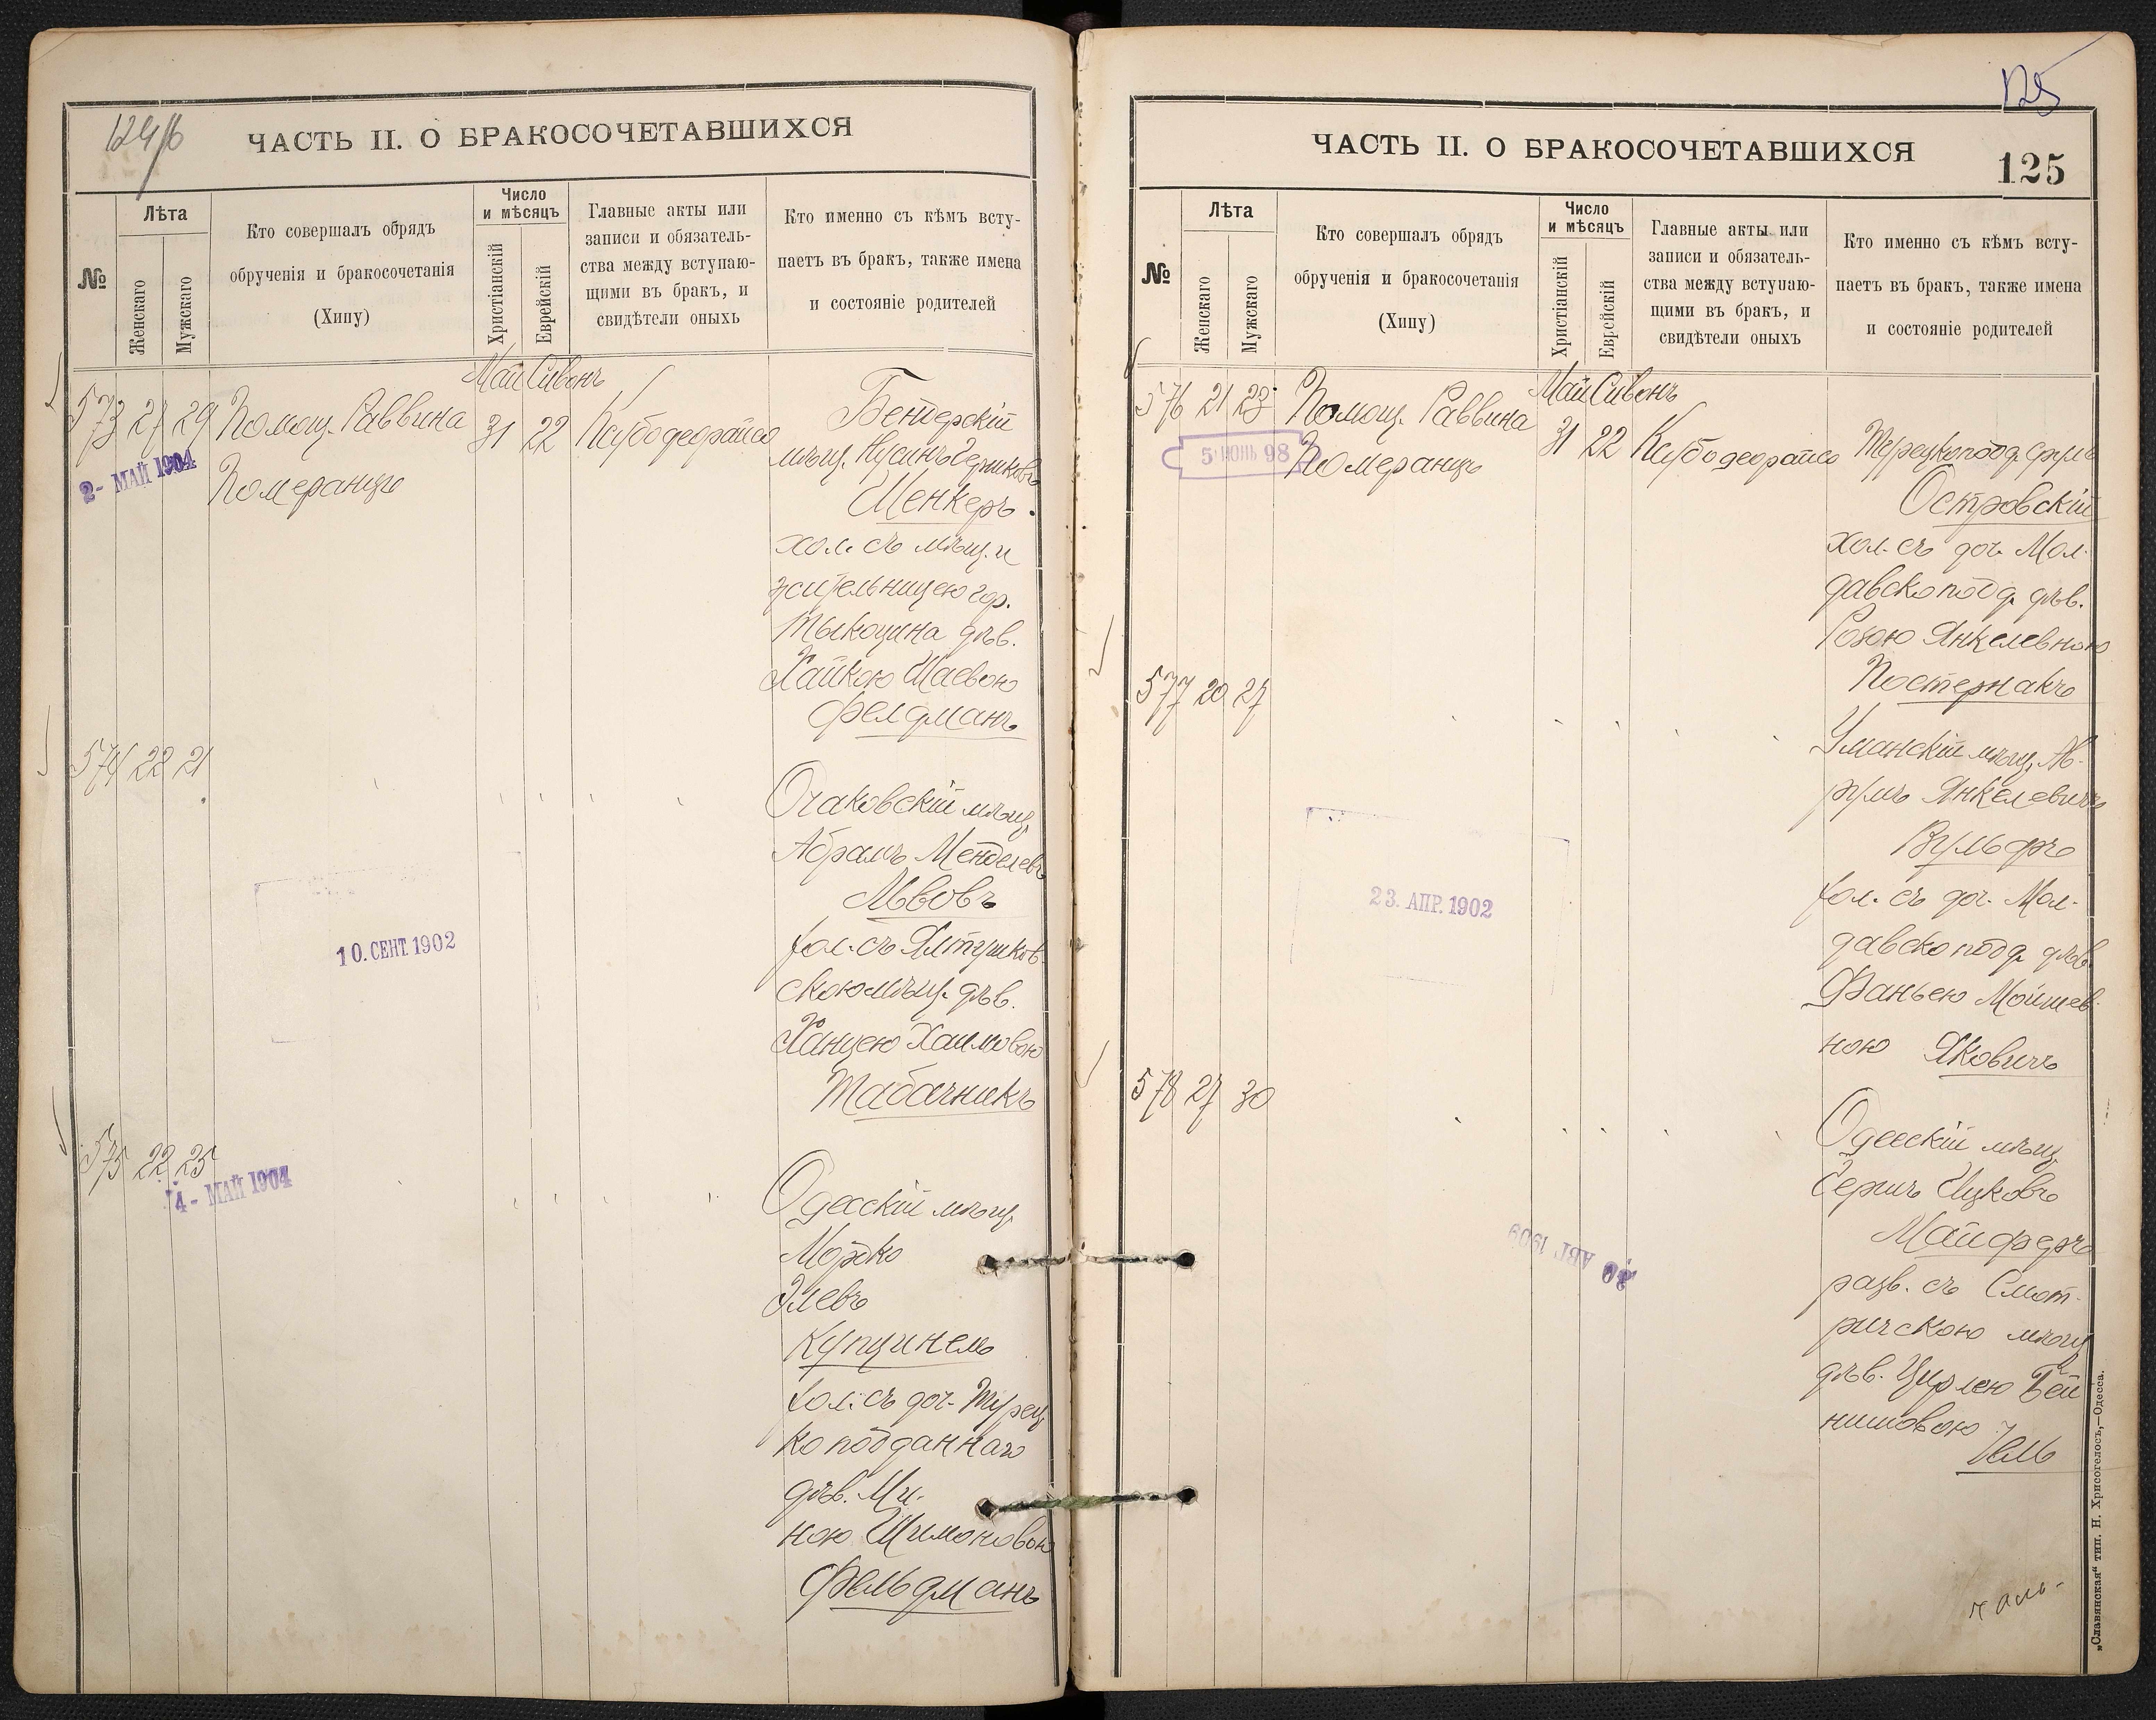 124/б
ЧАСТЬ II. О БРАКОСОЧЕТАВШИХСЯ
№
Лѣта
Женскаго
Мужскаго
Кто совершалъ обрядъ
обрученія и бракосочетанія
(Хипу)
Число
и мѣсяцъ
Христіанскій
Еврейскій
Главные акты или
записи и обязатель-
ства между вступаю-
щими въ бракъ, и
свидѣтели оныхъ
Кто именно съ кѣмъ всту-
паетъ въ бракъ, также имена
и состояніе родителей
Май Сивонъ
573 27 29 Помощ. Раввина 31 22
Померанцъ
2- МАЙ 1904
Бендерскій
мѣщ. Нусинъ
Шенкеръ
хол. съ мѣщ. и
жительницею гор.
Тыкоцина дѣв.
Хайкою Шаевою
Фелдманъ
574 22 21
Очаковскій мѣщ.
Абрамъ Менделевъ
Львовъ
хол. съ Ялтушков-
скою мѣщ. дѣв.
Ханцею Хаимовою
Табачникъ
10. СЕНТ. 1902
575 22 25
4- МАЙ 1904
Одесскій мѣщ.
Мошко
Элевъ
Купчинель
хол. съ доч. Турец
ко подданнаго
дѣв. Ми-
ною Шимоновою
Фельдманъ
125
ЧАСТЬ II. О БРАКОСОЧЕТАВШИХСЯ
125
№
Лѣта
Женскаго
Мужскаго
Кто совершалъ обрядъ
обрученія и бракосочетанія
(Хипу)
Число
и мѣсяцъ
Христіанскій
Еврейскій
Главные акты или
записи и обязатель-
ства между вступаю-
щими въ бракъ, и
свидѣтели оныхъ
Кто именно съ кѣмъ всту-
паетъ въ бракъ, также имена
и состояніе родителей
Май Сивонъ
576 21 23 Помощ. Раввина 31 22
Померанцъ
5 ІЮНЬ 98
Островскій
хол. съ доч. Мол-
давскопод. дѣв.
Розою Янкелевною
Постернакъ
577 20 27
Уманскій мѣщ. Аб-
румъ Янкелевичъ
Вульфъ
хол. съ доч. Мол-
давско под. дѣв.
Фаньею Мошев-
ною Яковичъ
23. АПР. 1902
578 27 30
Одесскій мѣщ.
Гершъ Ицковъ
Майферъ
разв. съ Смот-
ричскою мѣщ.
дѣв. Цирлею Бей
нишовою
Гель
20 АВГ. 1909
„Славянская“ тип. Н. Хрисогелосъ,—Одесса.